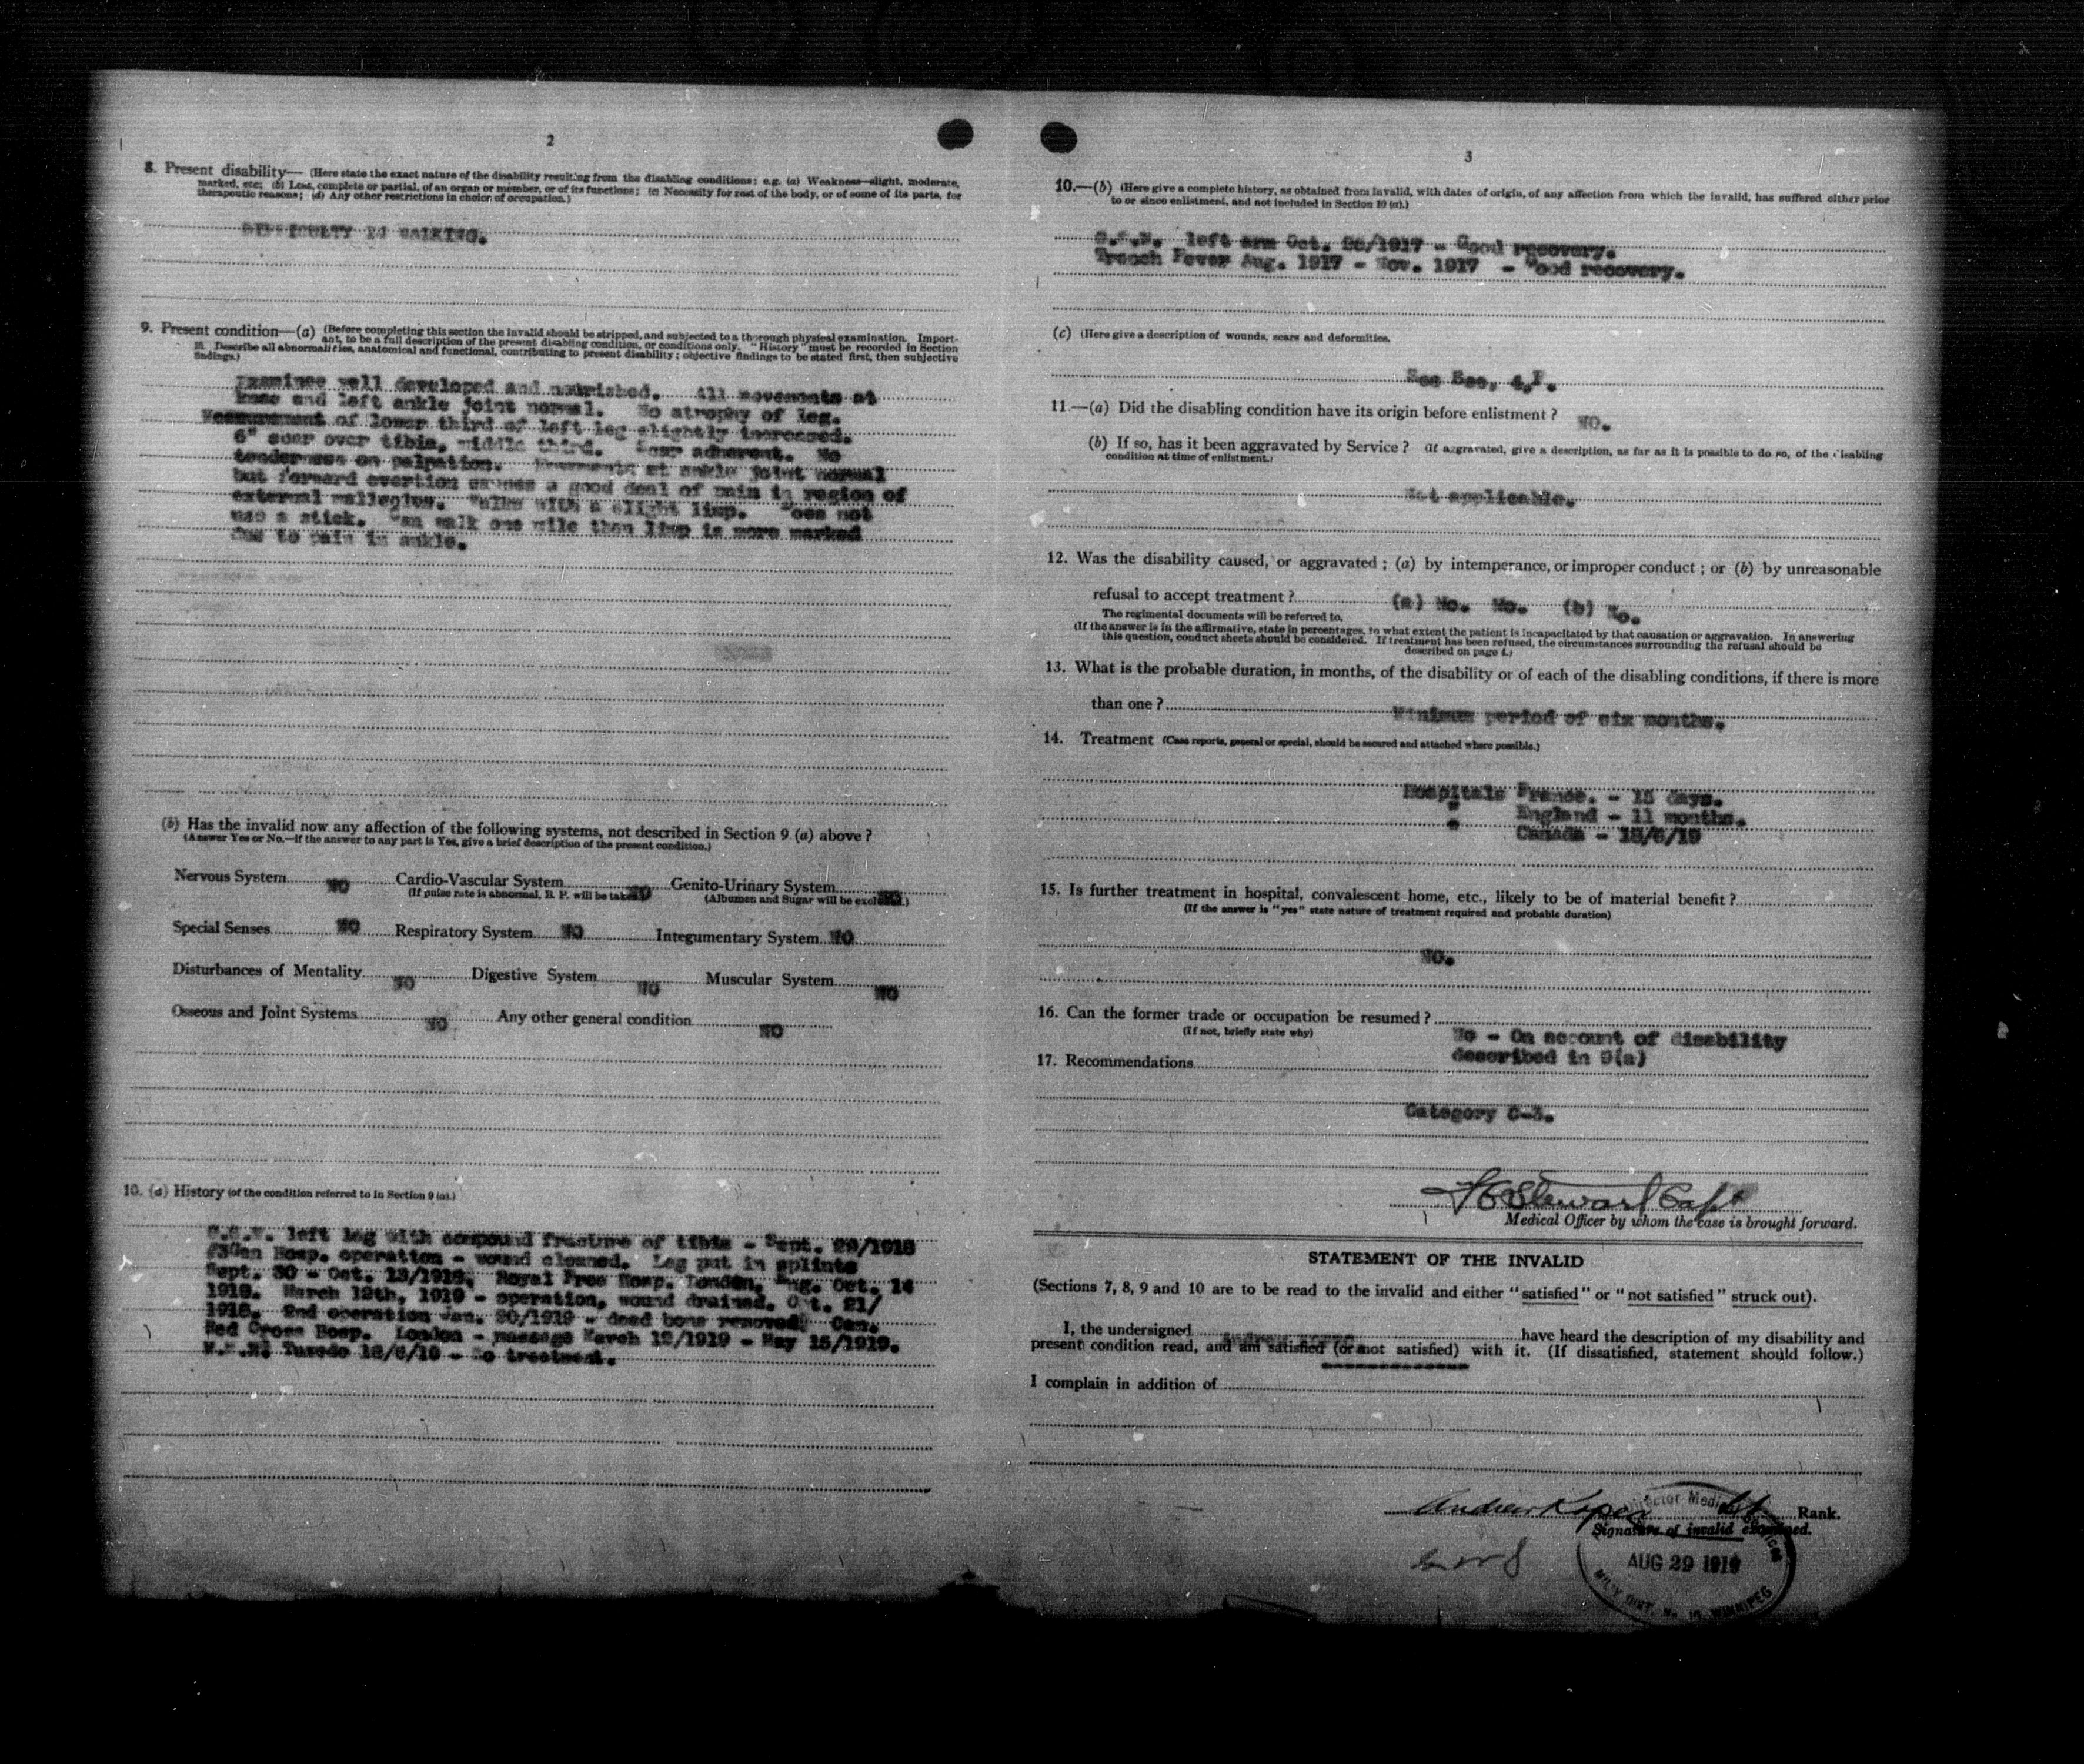 2
8. Present disability— (Here state the exact nature of the disability resulting from the disabling conditions; e.g. (a) Weakness—slight, moderate,
marked, etc; (b) Loss, complete or partial, of an organ or member, or of its functions; (c) Necessity for rest of the body, or of some of its parts, for
therapeutic reasons; (d) Any other restrictions in choice of occupation.)
DIFFICULTY IN WALKING.
9. Present condition—(a) (Before completing this section the invalid should be stripped, and subjected to a thorough physical examination. Import-
ant, to be a full description of the present disabling condition, or conditions only. "History" must be recorded in Section
10. Describe all abnormalities, anatomical and functional, contributing to present disability; objective findings to be stated first, then subjective
findings.)
Examinee well developed and nourished. All movements at
knee and left ankle joint normal. No atrophy of leg.
Measurement of lower third of left leg slightly increased.
6" scar over tibia, middle third. Scar adherent. No
tenderness on palpation. Movements at ankle joint normal
but forward evertion causes a good deal of pain in region of
external malleolus. Walks with a slight limp. Does not
use a stick. Can walk one mile then limp is more marked
due to pain in ankle.
(b) Has the invalid now any affection of the following systems, not described in Section 9 (a) above?
(Answer Yes or No.—if the answer to any part is Yes, give a brief description of the present condition.)
Nervous System NO Cardio-Vascular System NO Genito-Urinary System NO
(If pulse rate is abnormal, B. P. will be taken) (Albumen and Sugar will be excluded.)
Special Senses NO Respiratory System NO Integumentary System NO
Disturbances of Mentality NO Digestive System NO Muscular System NO
Osseous and Joint Systems NO Any other general condition NO
10. (a) History (of the condition referred to in Section 9 (a).)
G.S.W. left leg with compound fracture of tibia - Sept. 29/1918
#3Gen Hosp. operation - wound cleaned. Leg put in splints
Sept. 30 - Oct. 13/1918. Royal Free Hosp. London, Eng. Oct. 14
1918. March 12th, 1919 - operation, wound drained. Oct. 21/
1918. 2nd operation Jan. 20/1919 - dead bone removed. Can.
Red Cross Hosp. London - massage March 12/1919 - May 15/1919.
Tuxedo 18/6/19 - No treatment.
3
10.—(b) (Here give a complete history, as obtained from invalid, with dates of origin, of any affection from which the invalid, has suffered either prior
to or since enlistment, and not included in Section 10 (a).)
G.S.W. left arm Oct. 26/1917 - Good recovery.
Trench Fever Aug. 1917 - Nov. 1917 - Good recovery.
(c) (Here give a description of wounds, scars and deformities.
See Sec, 4,F.
11.—(a) Did the disabling condition have its origin before enlistment? NO.
(b) If so, has it been aggravated by Service? (If aggravated, give a description, as far as it is possible to do so, of the disabling
condition at time of enlistment.)
Not applicable.
12. Was the disability caused, or aggravated; (a) by intemperance, or improper conduct; or (b) by unreasonable
refusal to accept treatment? (a) No. No. (b) No.
The regimental documents will be referred to.
(If the answer is in the affirmative, state in percentages, to what extent the patient is incapacitated by that causation or aggravation. In answering
this question, conduct sheets should be considered. If treatment has been refused, the circumstances surrounding the refusal should be
described on page 4.)
13. What is the probable duration, in months, of the disability or of each of the disabling conditions, if there is more
than one? Minimum period of six months.
14. Treatment (Case reports, general or special, should be secured and attached where possible.)
Hospitals France. - 15 days.
" England - 11 months.
" Canada - 18/6/19
15. Is further treatment in hospital, convalescent home, etc., likely to be of material benefit?
(If the answer is "yes" state nature of treatment required and probable duration)
NO.
16. Can the former trade or occupation be resumed?
(If not, briefly state why) No - On account of disability
described in 9(a)
17. Recommendations
Category C-3.
Stewart Capt
Medical Officer by whom the case is brought forward.
STATEMENT OF THE INVALID
(Sections 7, 8, 9 and 10 are to be read to the invalid and either "satisfied" or "not satisfied" struck out).
I, the undersigned Andrew have heard the description of my disability and
present condition read, and am satisfied (or not satisfied) with it. (If dissatisfied, statement should follow.)
I complain in addition of
Andrew Rank.
Signature of invalid examined.
Director Medical Services
AUG 29 1919
MIL'Y DIST. No. 10, WINNIPEG